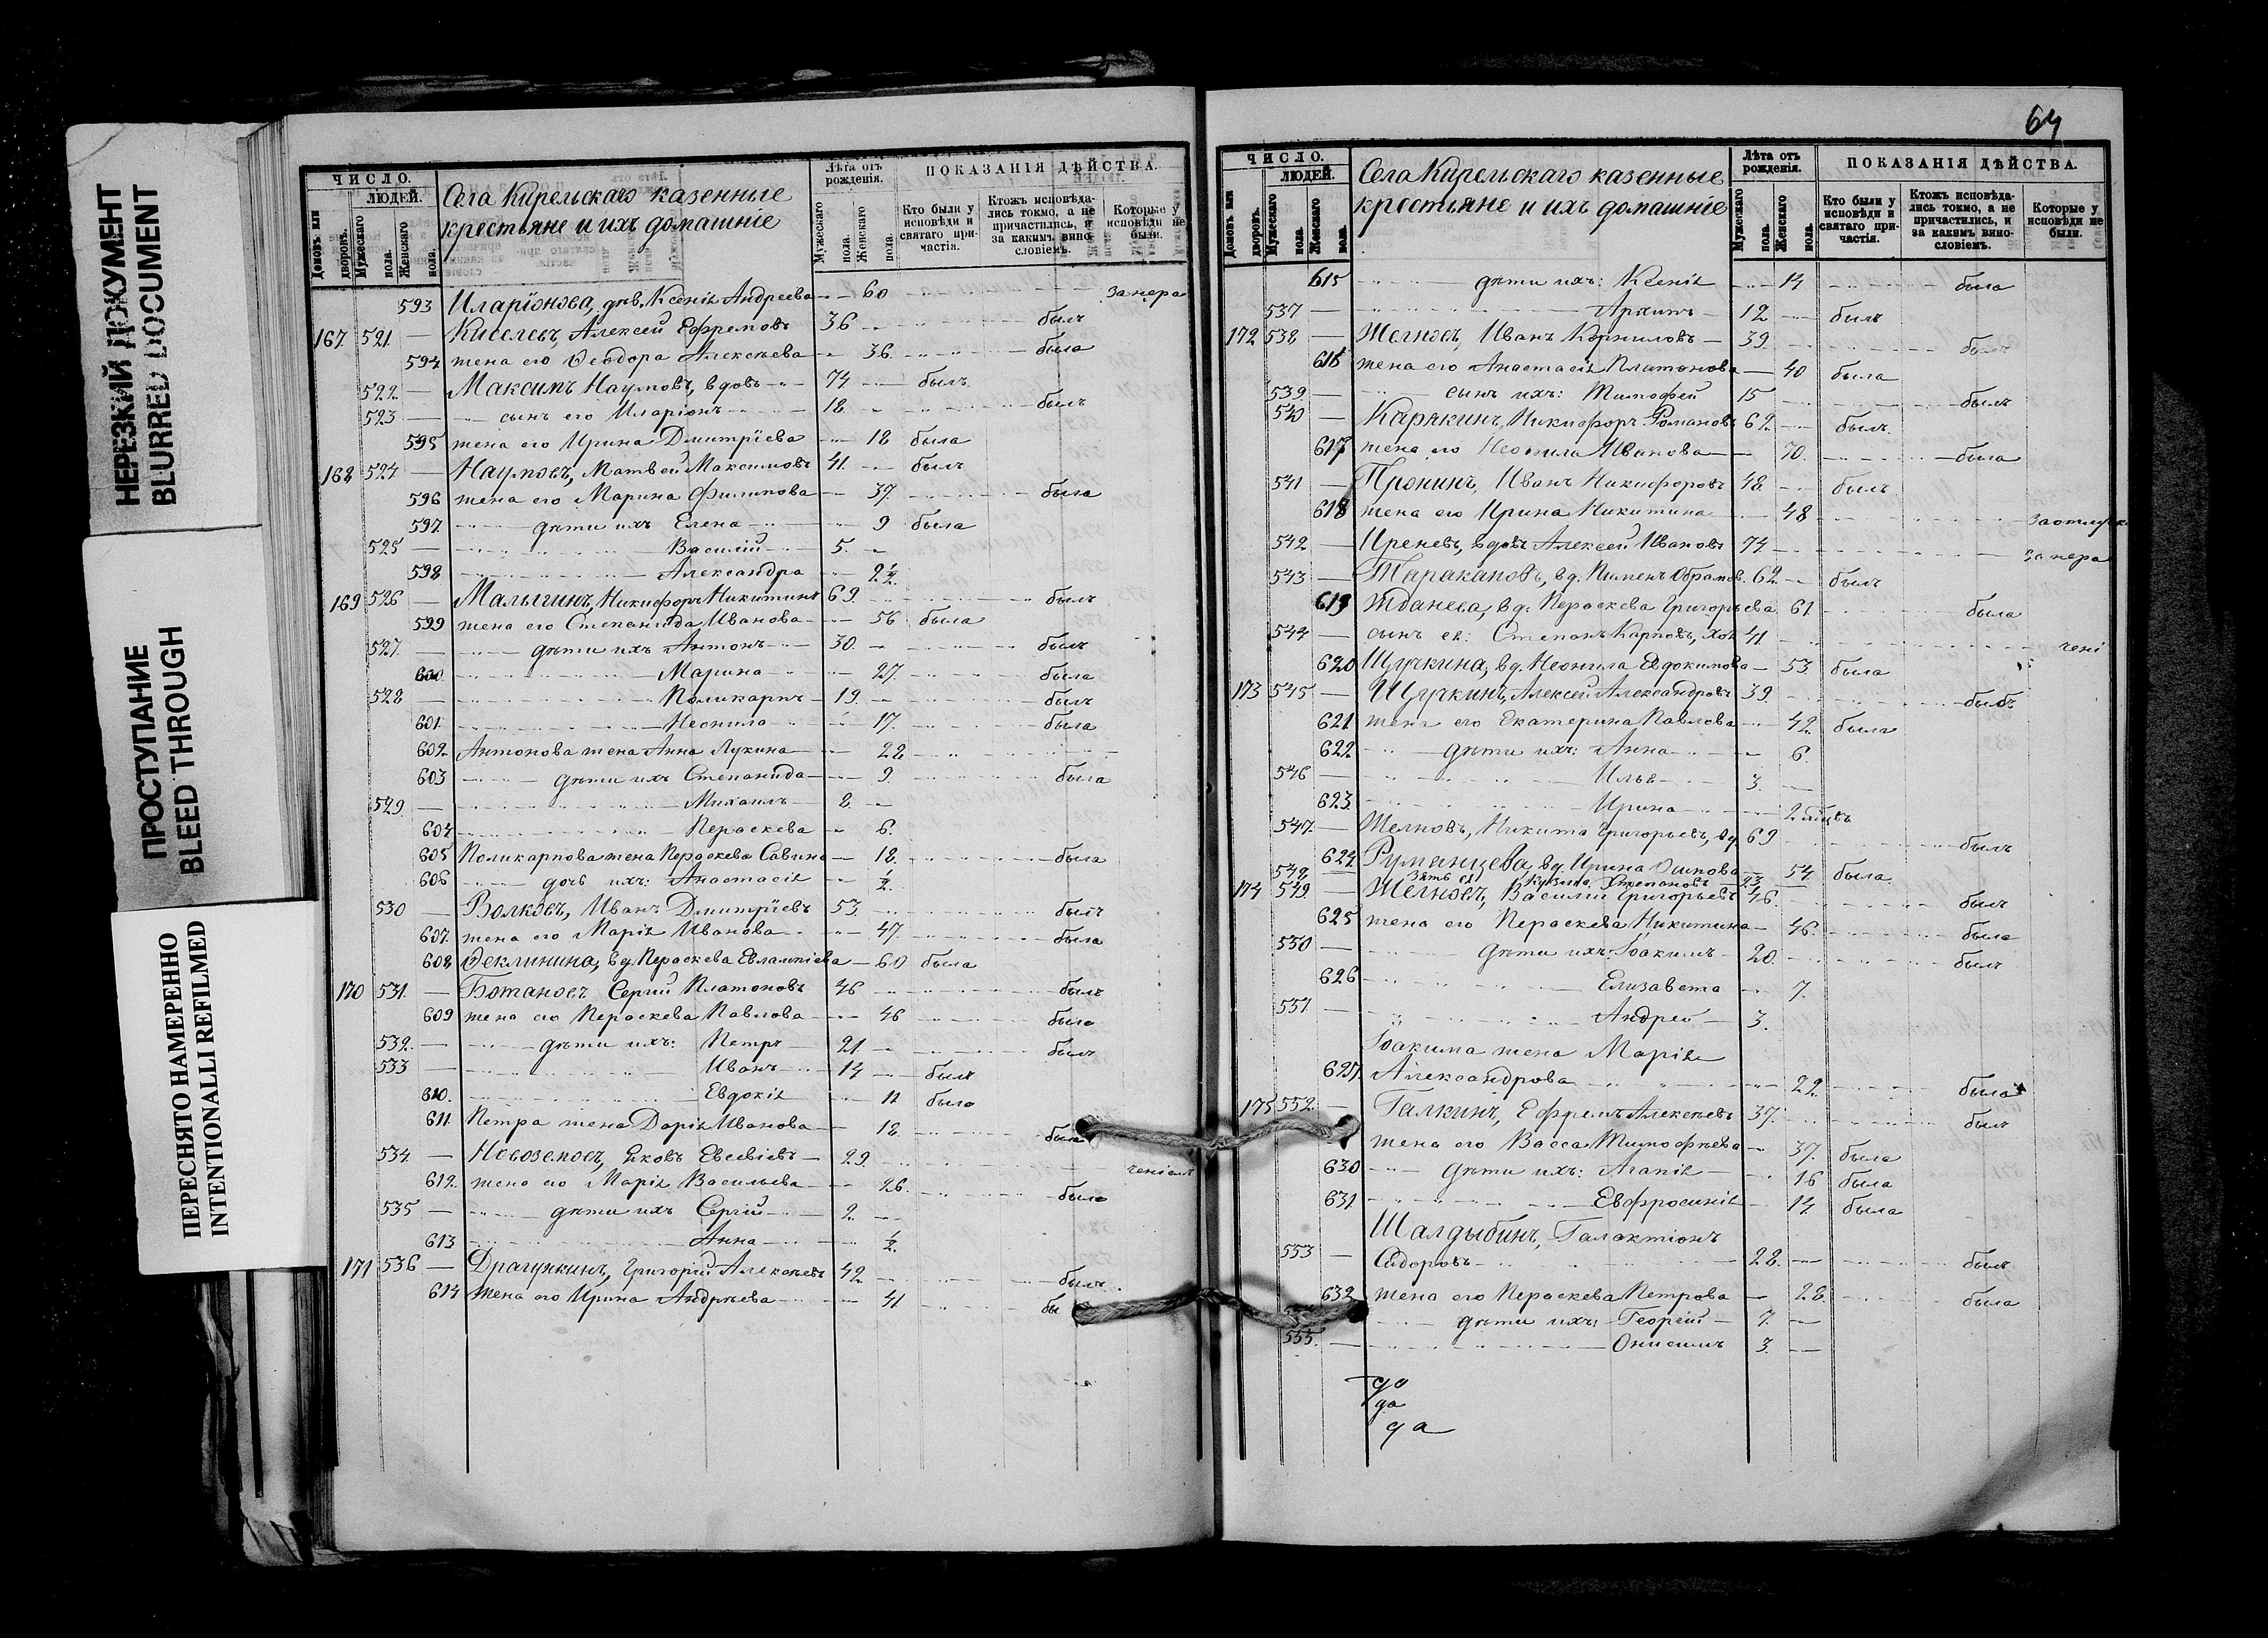 НЕРЕЗКИЙ ДОКУМЕНТ
BLURRED DOCUMENT
ПРОСТУПАНИЕ
BLEED THROUGH
ПЕРЕСНЯТО НАМЕРЕННО
INTENTIONALLI REFILMED
ЧИСЛО.
ЛЮДЕЙ.
Домовъ или дворовъ.
Мужескаго пола.
Женскаго пола.
Села Кирельскаго казенные
крестьяне и ихъ домашніе
Лѣта отъ рожденія.
Мужескаго пола.
Женскаго пола.
ПОКАЗАНІЯ ДѢЙСТВА.
Кто были у исповѣди и святаго причастія.
Ктожъ исповѣдались токмо, а не причастились, и за какимъ винословіемъ.
Которые у исповѣди не были.
593 Иларіонова, дѣв. Ксенія Андреева 60 за нера
167 521 Киселевъ, Алексей Ефремовъ 36 былъ
594 жена его Ѳеодора Алексѣева 36 была
522 Максимъ Наумовъ, вдовъ 74 былъ
523 сынъ его Иларіонъ 18 былъ
595 жена его Ирина Дмитріева 18 была
168 524 Наумовъ, Матвей Максимовъ 41 былъ
596 жена его Марина Филипова 37 была
597 дѣти ихъ Елена 9 была
525 Василій 5
598 Александра 2½
169 526 Малыгинъ, Никифоръ Никитинъ 69 былъ
599 жена его Степанида Иванова 56 была
527 дѣти ихъ Антонъ 30 былъ
600 Марина 27 была
528 Поликарпъ 19 былъ
601 Неонила 17 была
602 Антонова жена Анна Лукина 28
603 дѣти ихъ Степанида 9 была
529 Михаилъ 8
604 Пераскева 6
605 Поликарпова жена Пераскева Савина 18 была
606 дочь ихъ: Анастасія ½
530 Волковъ, Иванъ Дмитріевъ 53 былъ
607 жена его Марія Иванова 47 была
608 Ѳеклинина, вд. Пераскева Евлампіева 60 была
170 531 Ботановъ Сергій Платоновъ 46 былъ
609 жена его Пераскева Павлова 46 была
532 дѣти ихъ: Петръ 21 былъ
533 Иванъ 14 былъ
610 Евдокія 11 была
611 Петра жена Дарія Иванова 18 была
534 Новоземовъ, Яковъ Евсевіевъ 29
612 жена его Марія Васильева 26 была
535 дѣти ихъ Сергій 2
613 Анна ½
171 536 Драгункинъ, Григорій Алексѣевъ 42 былъ
614 жена его Ирина Андрѣева 41 бы
64
ЧИСЛО.
ЛЮДЕЙ.
Домовъ или дворовъ.
Мужескаго пола.
Женскаго пола.
Села Кирельскаго казенные
крестьяне и ихъ домашніе
Лѣта отъ рожденія.
Мужескаго пола.
Женскаго пола.
ПОКАЗАНІЯ ДѢЙСТВА.
Кто были у исповѣди и святаго причастія.
Ктожъ исповѣдались токмо, а не причастились, и за какимъ винословіемъ.
Которые у исповѣди не были.
615 дѣти ихъ: Ксенія 14 была
537 Архипъ 12 былъ
172 538 Желновъ, Иванъ Корниловъ 39 былъ
616 жена его Анастасія Платонова 40 была
539 сынъ ихъ: Тимофей 15 былъ
540 Карякинъ, Никифоръ Романовъ 62 былъ
617 жена его Неонила Иванова 70 была
541 Пронинъ, Иванъ Никифоровъ 48 былъ
618 жена его Ирина Никитина 48
542 Иреневъ, вдовъ Алексей Ивановъ 74 за нера
543 Таракановъ, вд. Пименъ Абрамов. 62 былъ
619 Жданева, вд. Пераскева Григорьева 61 была
544 сынъ ея: Степанъ Карповъ, хол 41
620 Щучкина, вд. Неонила Евдокимова 53 была
173 545 Щучкинъ, Алексей Александровъ 39 былъ
621 жена его Екатерина Павлова 42 была
622 дѣти ихъ: Анна 6
546 Илья 3
623 Ирина 2
547 Желновъ, Никита Григорьевъ, вд 69 былъ
624 Румянцева, вд. Ирина Осипова 54 была
548 Зять ея Степановъ 23
174 549 Желновъ, Василій Григорьевъ 46 былъ
625 жена его Пераскева Никитина 46 была
550 дѣти ихъ: Іоакимъ 20 былъ
626 Елизавета 7
551 Андрей 3
Іоакима жена Марія
627 Александрова 22 была
175 552 Галкинъ, Ефремъ Алексѣевъ 37 былъ
жена его Васса Тимофѣева 37 была
630 дѣти ихъ: Агапія 16 была
631 Евфросинія 14 была
Шалдыбинъ, Галактіонъ
553 Сидоровъ 28 былъ
632 жена его Пераскева Петрова 28 была
дѣти ихъ: Георгій 7
555 Онисимъ 3
до
да
да